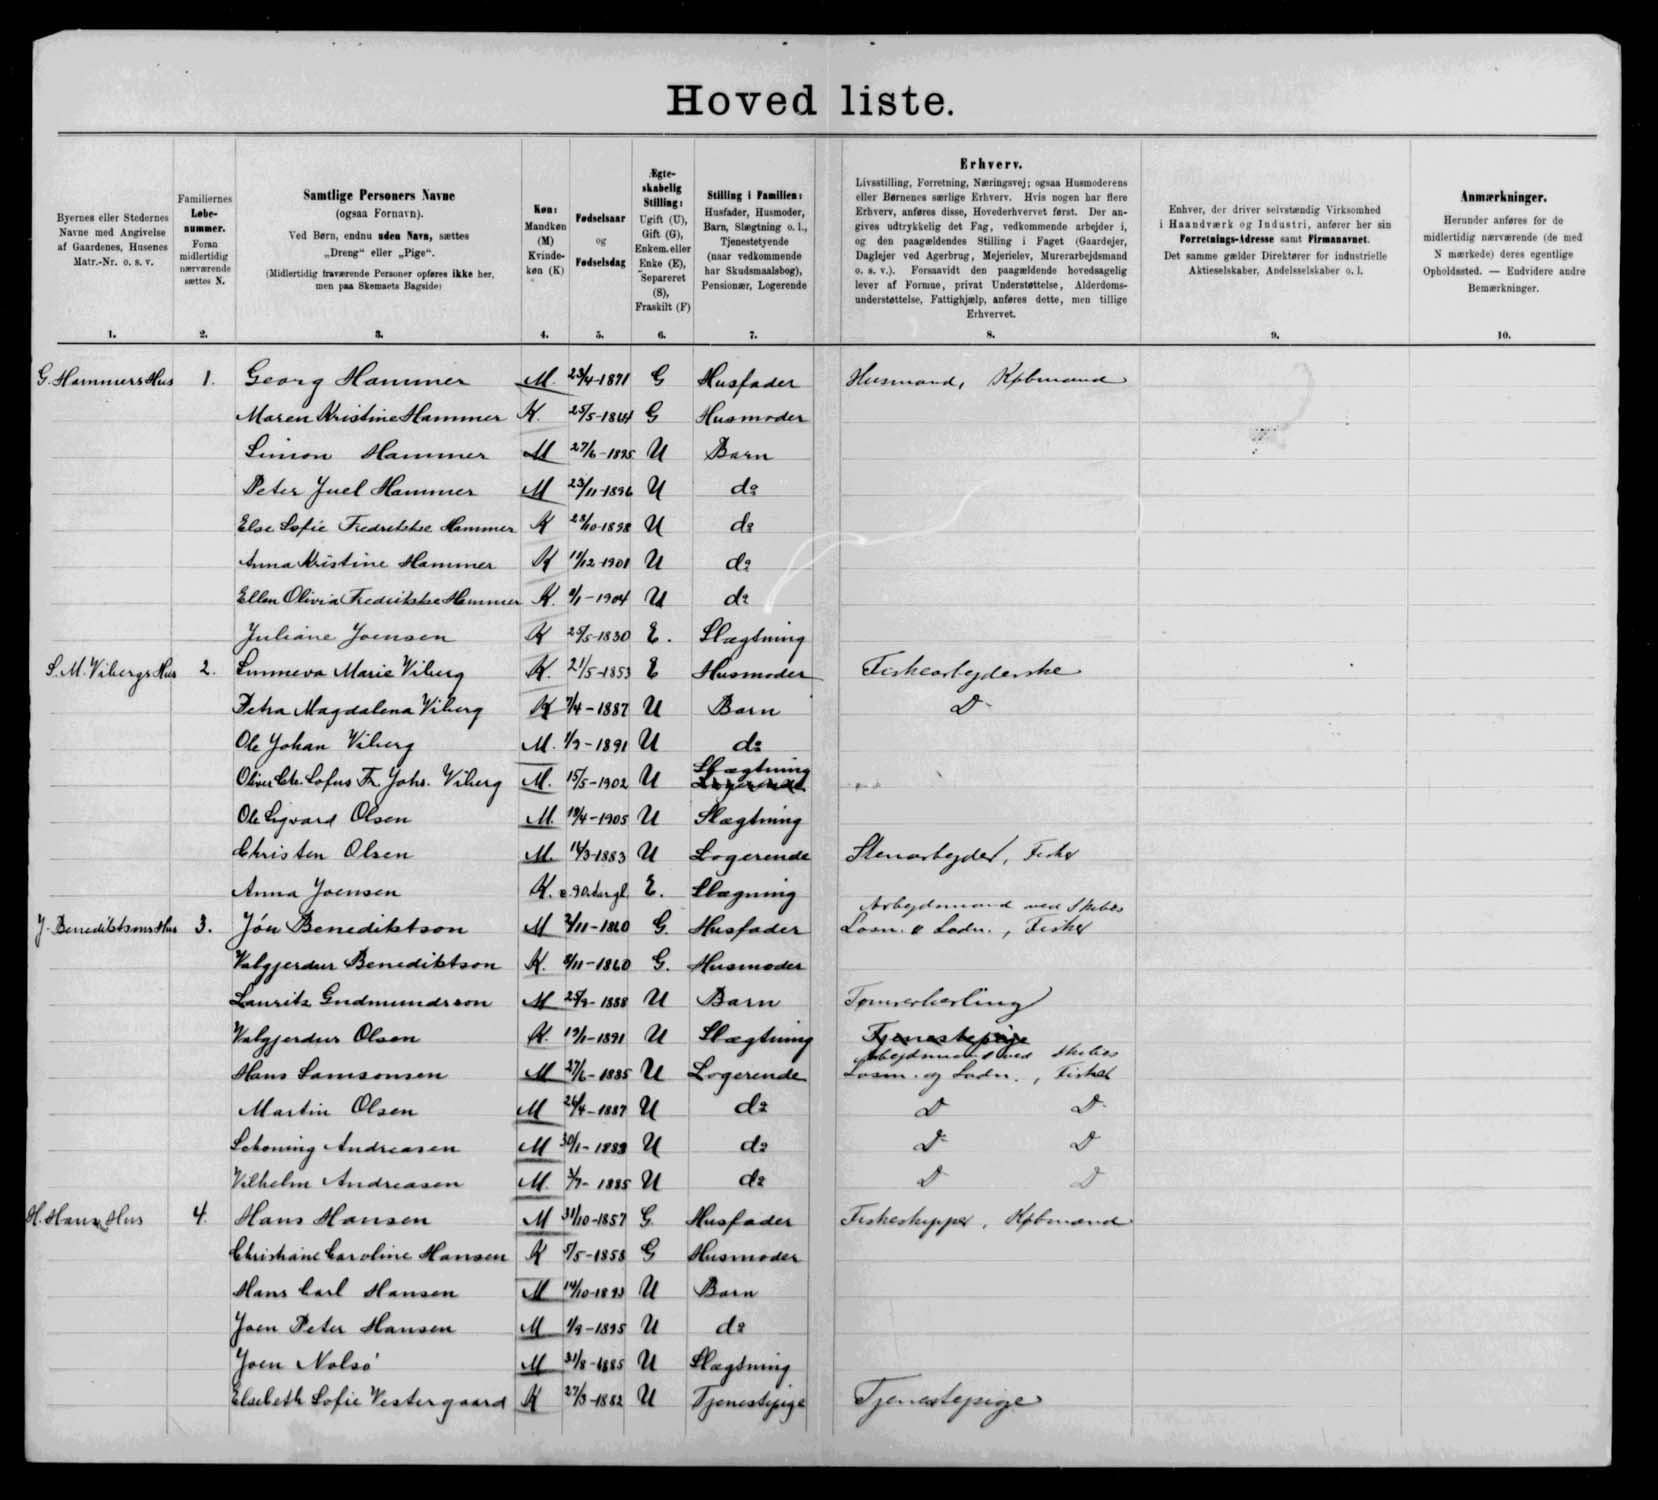 Hoved liste.
Byernes eller Stedernes
Navne med Angivelse
af Gaardenes, Husenes
Matr.-Nr. o. s. v.
1.
Familiernes
Løbe-
nummer.
Foran
midlertidig
nærværende
sættes N.
2.
Samtlige Personers Navne
(ogsaa Fornavn).
Ved Børn, endnu uden Navn, sættes
„Dreng" eller „Pige".
(Midlertidig fraværende Personer opføres ikke her,
men paa Skemaets Bagside)
3.
Køn:
Mandkøn
(M)
Kvinde-
køn (K)
4.
Fødselsaar
og
Fødselsdag
5.
Ægte-
skabelig
Stilling:
Ugift (U),
Gift (G),
Enkem. eller
Enke (E),
Separeret
(S),
Fraskilt (F)
6.
Stilling i Familien:
Husfader, Husmoder,
Barn, Slægtning o. l.,
Tjenestetyende
(naar vedkommende
har Skudsmaalsbog),
Pensionær, Logerende
7.
Erhverv.
Livsstilling, Forretning, Næringsvej; ogsaa Husmoderens
eller Børnenes særlige Erhverv. Hvis nogen har flere
Erhverv, anføres disse, Hovederhvervet først. Der an-
gives udtrykkelig det Fag, vedkommende arbejder i,
og den paagældendes Stilling i Faget (Gaardejer,
Daglejer ved Agerbrug, Mejerielev, Murerarbejdsmand
o. s. v.). Forsaavidt den paagældende hovedsagelig
lever af Formue, privat Understøttelse, Alderdoms-
understøttelse, Fattighjælp, anføres dette, men tillige
Erhvervet.
8.
Enhver, der driver selvstændig Virksomhed
i Haandværk og Industri, anfører her sin
Forretnings-Adresse samt Firmanavnet.
Det samme gælder Direktører for industrielle
Aktieselskaber, Andelsselskaber o. l.
9.
Anmærkninger.
Herunder anføres for de
midlertidig nærværende (de med
N mærkede) deres egentlige
Opholdssted. — Endvidere andre
Bemærkninger.
10.
G. Hammers Hus 1. Georg Hammer M. 23/4-1871 G Husfader Husmand, Købmand
Maren Kristine Hammer K. 25/5-1864 G Husmoder
Simon Hammer M 27/6-1895 U Barn
Peter Juel Hammer M 23/11-1896 U do
Else Sofie Fredrikke Hammer K 28/10-1898 U do
Anna Kristine Hammer K 11/12-1901 U do
Ellen Olivia Fredrikke Hammer K. /1-1904 U do
Juliane Joensen K 25/5-1830 E. Slægtning
S. M. Vibergs Hus 2. Sunneva Marie Viberg K. 21/5-1853 E Husmoder Fiskearbejderske
Petra Magdalena Viberg K 7/4-1887 U Barn Do
Ole Johan Viberg M. 1/9-1891 U do
Oliver Chr. Sofus Fr. Johs. Viberg M. 15/5-1902 U Slægtning Logerende
Ole Sigvard Olsen M. 19/4-1905 U Slægtning
Christen Olsen M. 14/3-1883 U Logerende Stenarbejder, Fisker
Anna Joensen K. E. Slægning
J. Benediktsons Hus 3. Jón Benediktson M /11-1860 G. Husfader Arbejdsmand ved Skibes
Losn. o Ladn., Fisker
Valgjerdur Benediktson K. 8/11-1860 G. Husmoder
Laurits Gudmundsson M 25/9-1888 U Barn Tømrerlærling
Valgjerdur Olsen K. 19/1-1891 U Slægtning Tjenestepige
Hans Samsonsen M 27/6-1885 U Logerende Arbejdsmand ved Skibes
Losn. og Ladn., Fisker
Martin Olsen M 26/4-1887 U do Do Do
Schøning Andreasen M 30/1-1883 U do Do Do
Vilhelm Andreasen M. 3/7-1885 U do Do Do
H. Hans. Hus 4. Hans Hansen M 31/10-1857 G. Husfader Fiskeskipper, Købmand
Christiane Caroline Hansen K 5/5-1858 G Husmoder
Hans Carl Hansen M 14/10-1893 U Barn
Joen Peter Hansen M 1/9-1895 U do
Joen Nolsö M 31/8-1885 U Slægtning
Elsebeth Sofie Vestergaard K 27/3-1882 U Tjenestepige Tjenestepige